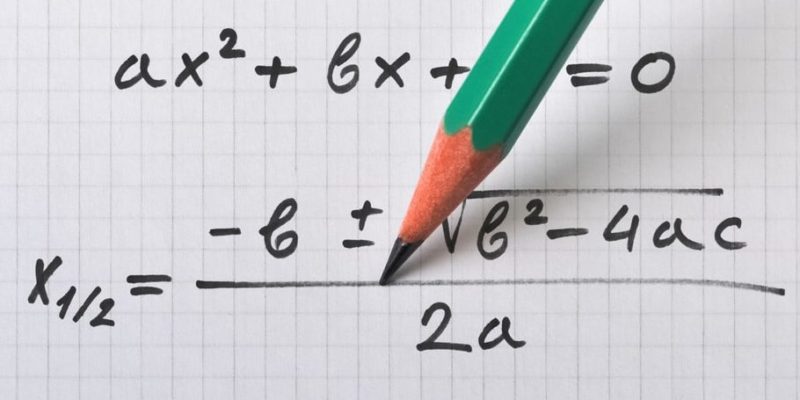 ax² + bx + = 0
x₁/₂ = (-b ± √(b² - 4ac)) / 2a